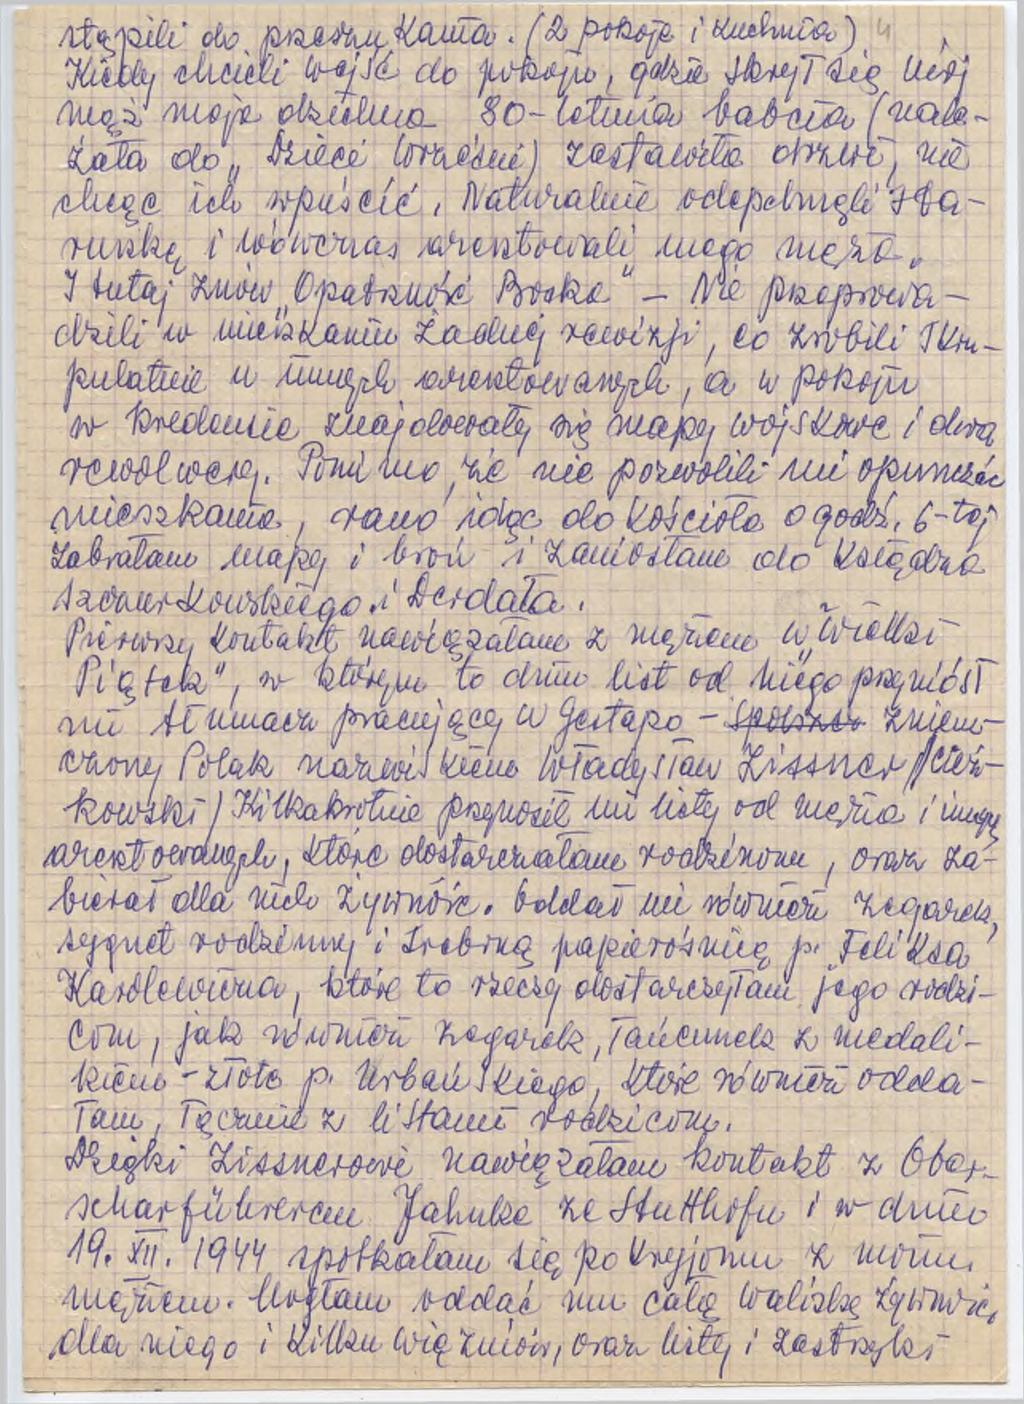 stąpili do przeszukania. (2 pokoje i kuchnia) 4
Kiedy chcieli wejść do pokoju, gdzie skrył się mój
mąż moja dzielna 80-letnia babcia (nale-
żała do „Dzieci Wrześni) zastawiła drzwi, nie
chcąc ich wpuścić. Naturalnie odepchnęli sta-
ruszkę i wówczas aresztowali mego męża.
I tutaj znów „Opatrzność Boska" - Nie przeprowa-
dzili w mieszkaniu żadnej rewizji, co zrobili skru-
pulatnie u innych aresztowanych, a w pokoju
w kredensie znajdowały się mapy wojskowe i dwa
rewolwery. Pomimo, że nie pozwolili mi opuszczać
mieszkania, rano idąc do kościoła o godz. 6-tej
zabrałam mapy i broń i zaniosłam do księdza
Szczurkowskiego i Derdała.
Pierwszy kontakt nawiązałam z mężem w „Wielki
Piątek", w którym to dniu list od niego przyniósł
mi tłumacz pracujący w Gestapo - zniem-
czony Polak nazwiskiem Władysław Lissner /Cier-
kowski/ Kilkakrotnie przynosił mi listy od męża i innych
aresztowanych, które dostarczałam rodzinom, oraz za-
bierał dla nich żywność. Oddał mi również zegarek,
sygnet rodzinny i srebrną papierośnicę p. Feliksa
Karolewicza, które to rzeczy dostarczyłam jego rodzi-
com, jak również zegarek, łańcuszek z medali-
kiem - złote p. Urbańskiego, które również odda-
łam, łącznie z listami rodzicom.
Dzięki Lissnerowi nawiązałam kontakt z Ober-
scharführerem Jahnke ze Stutthofu i w dniu
19. XII. 1944 spotkałam się po kryjomu z moim
mężem. Mogłam oddać mu całą walizkę żywności
dla niego i kilku więźniów, oraz listy i zastrzyki